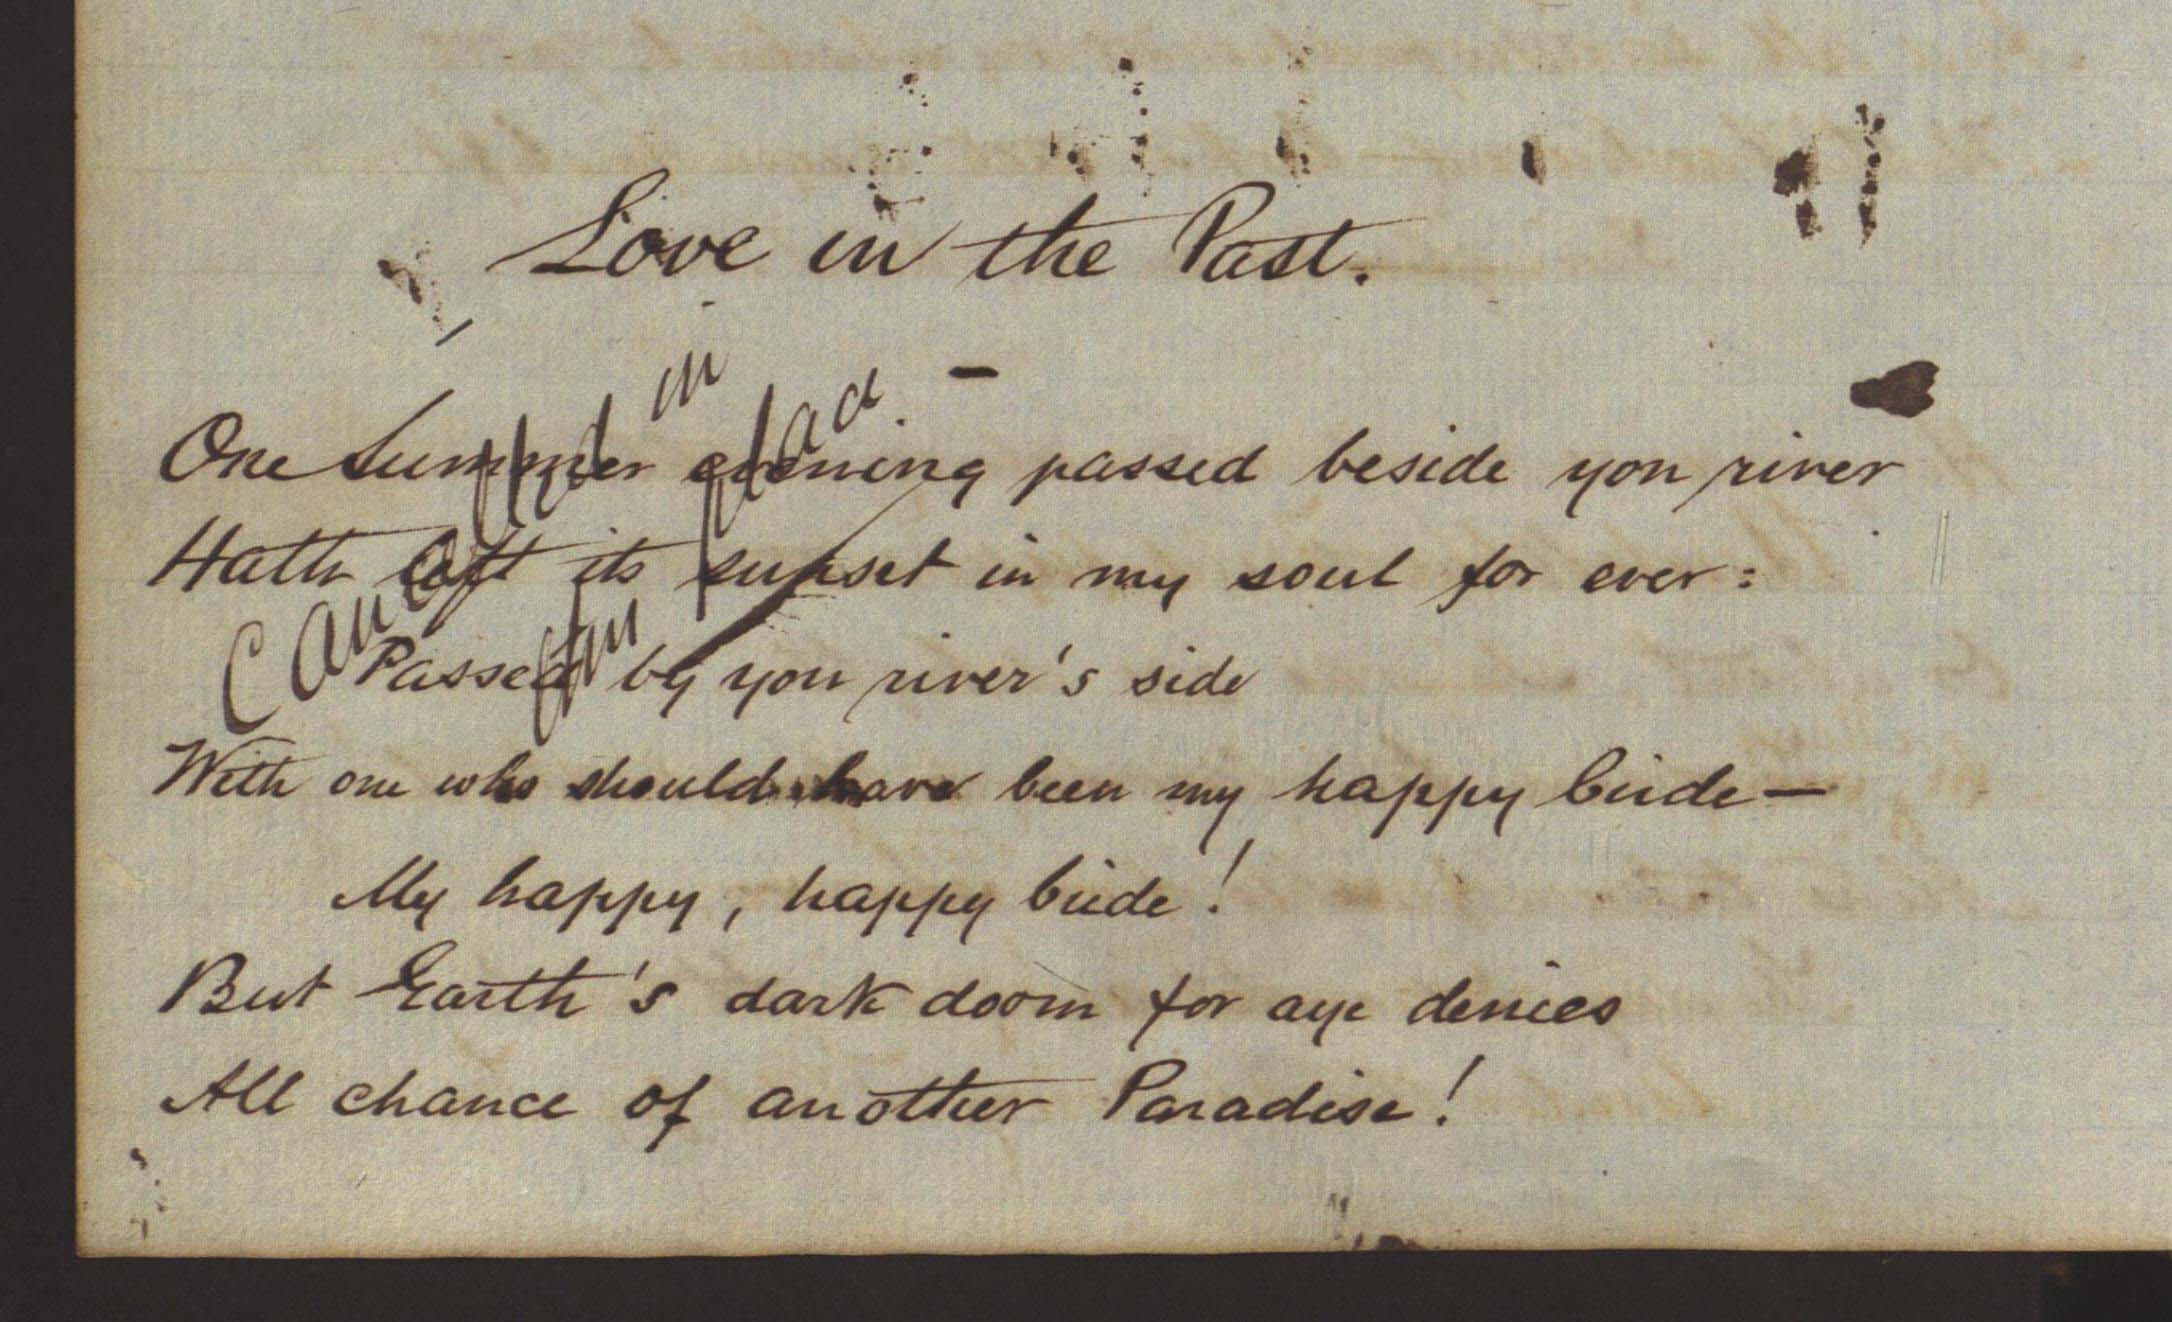 Love in the Past.
One Summer evening passed beside yon river
Hath left its sunset in my soul for ever:
Passed by yon river's side
With one who should have been my happy bride—
My happy, happy bride!
But Earth's dark doom for aye denies
All chance of another Paradise!
in